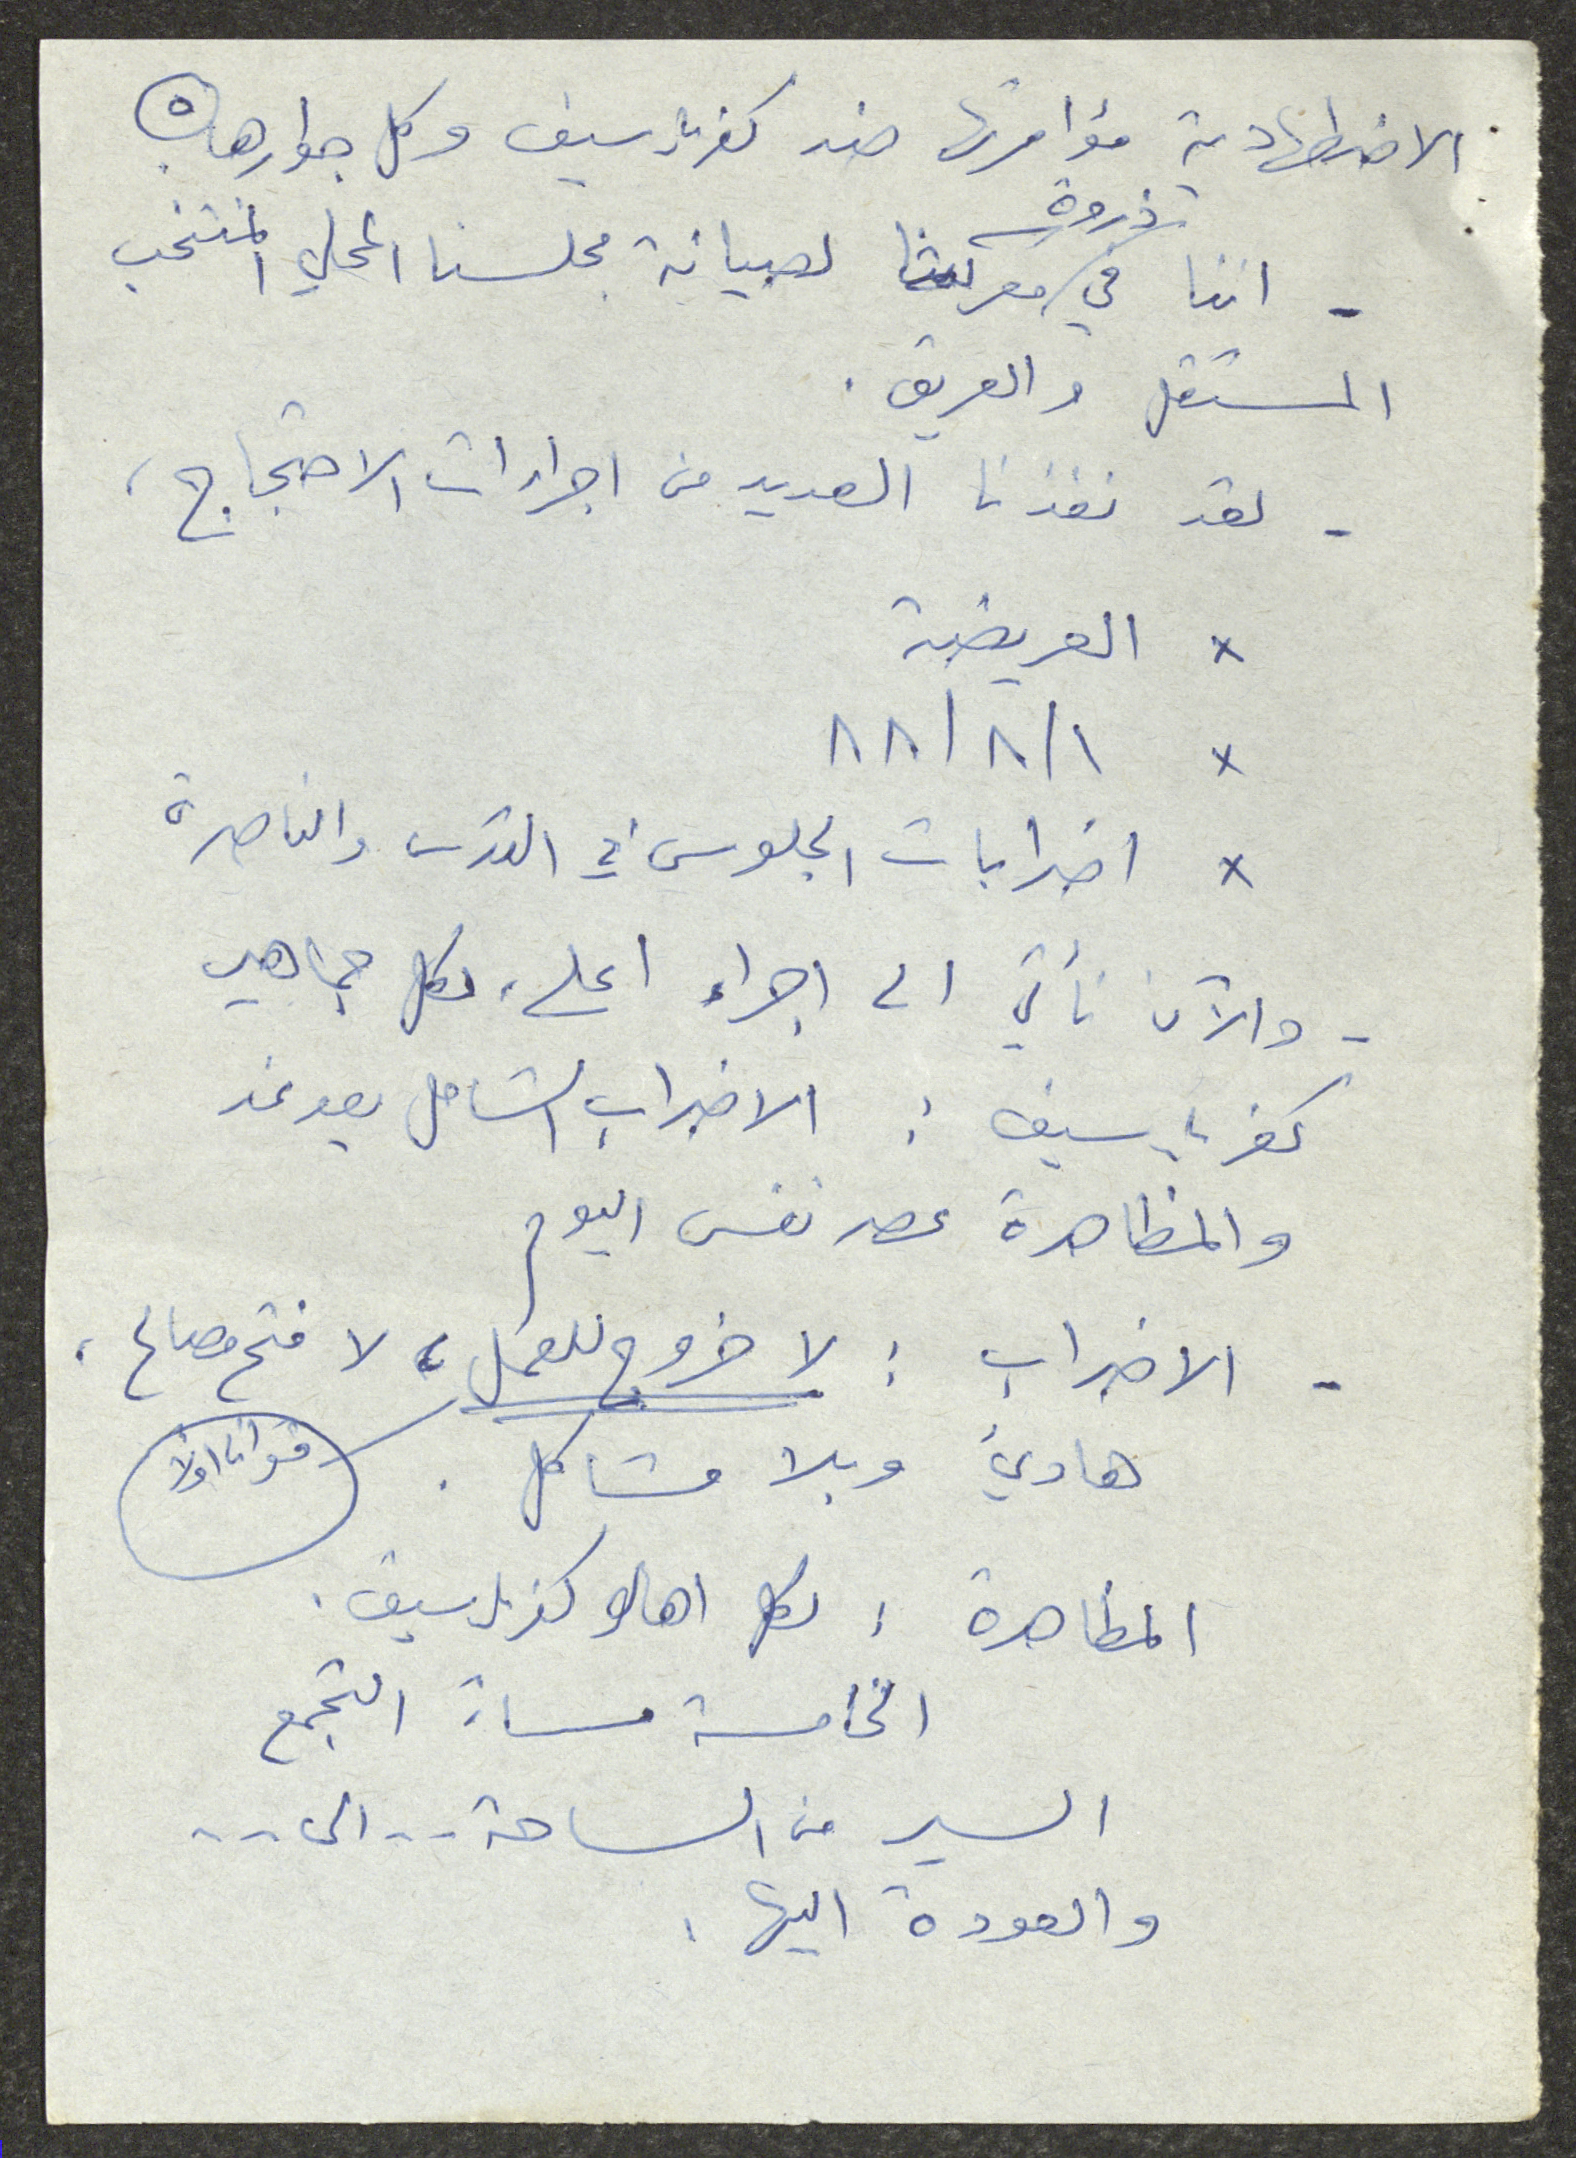 الاضطهادية مؤامرتها ضد كفرياسيف وكل جوارها. ٥
- اننا في ذروة معركتنا لصيانة مجلسنا المحلي المنتخب
المستقل والعريق.
- لقد نفذنا العديد من اجراءات الاحتجاج،
x العريضة
x ٨٨/٨/١
x اضرابات الجلوس في القدس والناصرة
- والآن نأتي الى اجراء اعلى، لكل جماهير
كفرياسيف: الاضراب الشامل بعد غد
والمظاهرة عصر نفس اليوم
- الاضراب: لا خروج للعمل، لا فتح مصالح،
هادئ وبلا مشاكل.
المظاهرة: لكل اهالي كفرياسيف.
الخامسة مساءً التجمع
السير من الساحة... الى...
والعودة اليها.